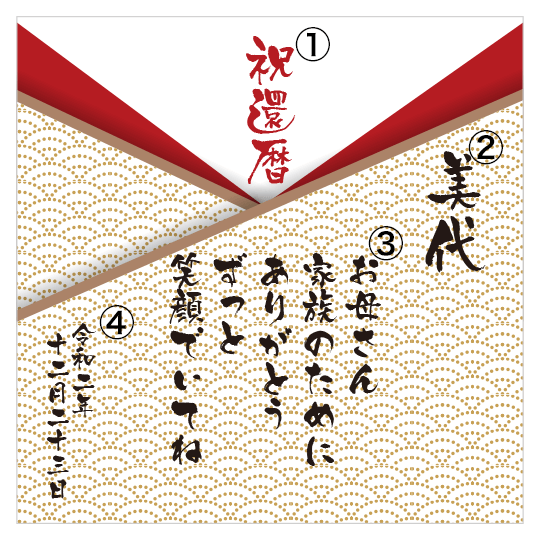 ①
祝還暦
②
美代
③
お母さん
家族のために
ありがとう
ずっと
笑顔でいてね
④
令和二年
十二月二十三日